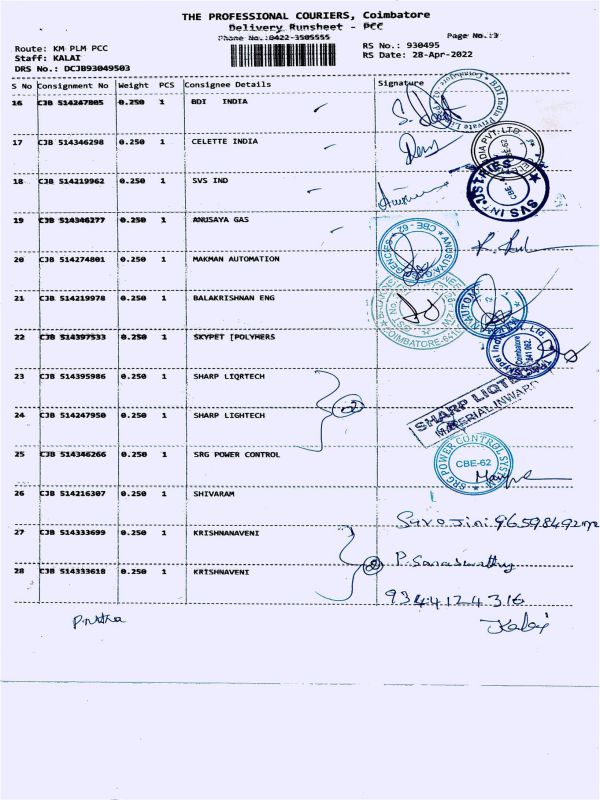 THE PROFESSIONAL COURIERS, Coimbatore
Delivery Runsheet - PCC
Phone No.:0422-3505555
Page No.:3
Route: KM PLM PCC
Staff: KALAI
DRS No.: DCJB93049503
RS No.: 930495
RS Date: 28-Apr-2022
S No Consignment No Weight PCS Consignee Details Signature
16 CJB 514247805 0.250 1 BDI INDIA
17 CJB 514346298 0.250 1 CELETTE INDIA
18 CJB 514219962 0.250 1 SVS IND
19 CJB 514346277 0.250 1 ANUSAYA GAS
20 CJB 514274801 0.250 1 MAKMAN AUTOMATION
21 CJB 514219978 0.250 1 BALAKRISHNAN ENG
22 CJB 514397533 0.250 1 SKYPET [POLYMERS
23 CJB 514395986 0.250 1 SHARP LIQRTECH
24 CJB 514247950 0.250 1 SHARP LIGHTECH
25 CJB 514346266 0.250 1 SRG POWER CONTROL
26 CJB 514216307 0.250 1 SHIVARAM
27 CJB 514333699 0.250 1 KRISHNANAVENI
28 CJB 514333618 0.250 1 KRISHNAVENI
BDI India Private
INDIA PVT. LTD
SVS INDUSTRIES
CBE
CBE - 62
COIMBATORE-641
Coimbatore
641 062.
SHARP LIQTECH
MATERIAL INWARD
SRG POWER CONTROL SYSTEM
CBE-62
P. Saraswathy
9344124316
Kalai